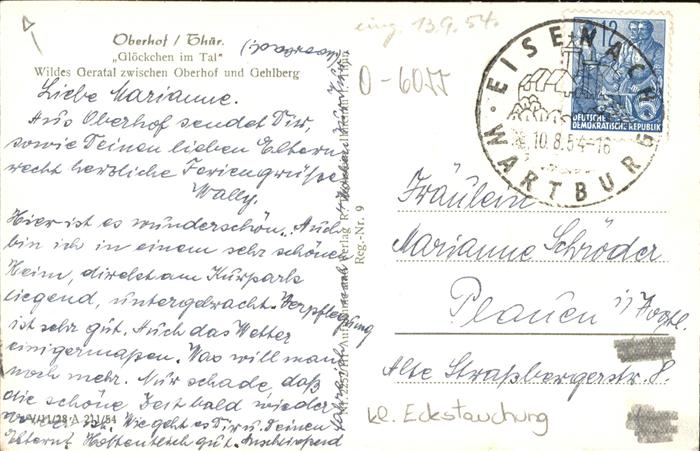 Oberhof / Thür.
„Glöckchen im Tal“
Wildes Geratal zwischen Oberhof und Gehlberg
Liebe Marianne.
Aus Oberhof sendet Dir,
sowie Deinen lieben Eltern
recht herzliche Feriengrüße
Wally.
Hier ist es wunderschön. Auch
bin ich in einem sehr schönen
Heim, direkt am Kurpark
liegend, untergebracht. Verpflegung
ist sehr gut. Auch das Wetter
einigermaßen. Was will man
noch mehr. Nur schade, daß
die schöne Zeit bald wieder
ist. Wie geht es Dir u. Deinen
Eltern? Hoffentlich gut. Anschließend
V/11/28 A 211/54
Verlag
Reg.-Nr. 9
eing. 13.9.54.
0-6055
EISENACH
WARTBURG
10.8.54-16
12
DEUTSCHE
DEMOKRATISCHE REPUBLIK
Fräulein
Marianne Schröder
Plauen i/ Vogtl.
Alte Straßbergerstr. 8.
kl. Eckstauchung